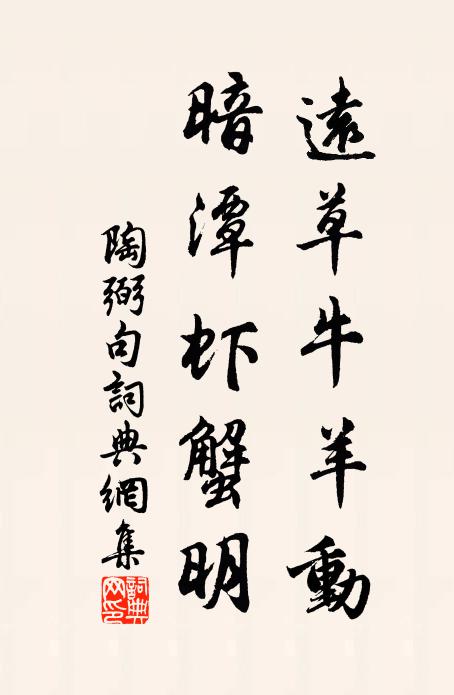 遠草牛羊動
暗潭虾蟹明
陶弼句詞典網集
詞典網印